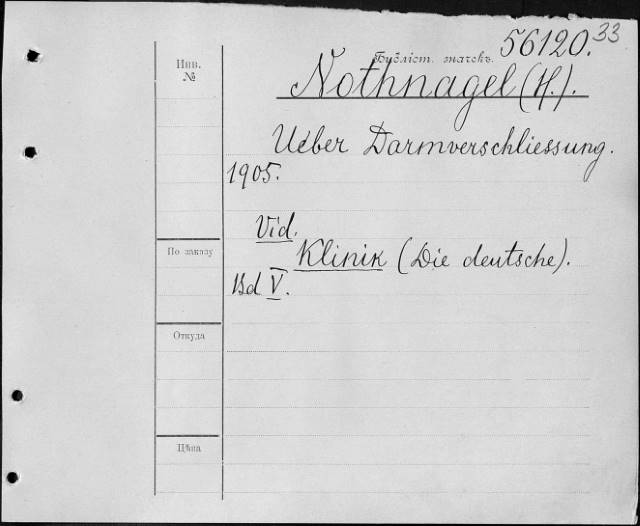 56120.33
Инв.
№
Nothnagel (H.).
Ueber Darmverschliessung.
1905.
Vid.
Klinik (Die deutsche).
По заказу
Bd V.
Откуда
Цѣна